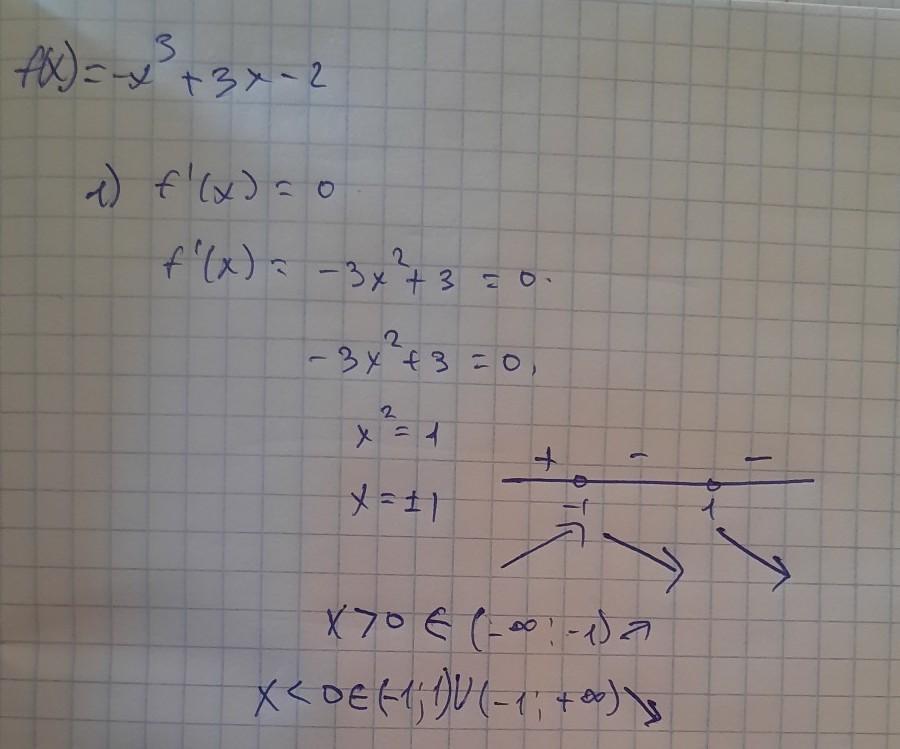 f(x) = -x³ + 3x - 2
1) f'(x) = 0
f'(x) = -3x² + 3 = 0.
-3x² + 3 = 0,
x² = 1
+ - -
x = ±1
-1 1
x > 0 ∈ (-∞; -1) ↗
x < 0 ∈ (-1; 1) ∪ (-1; +∞) ↘